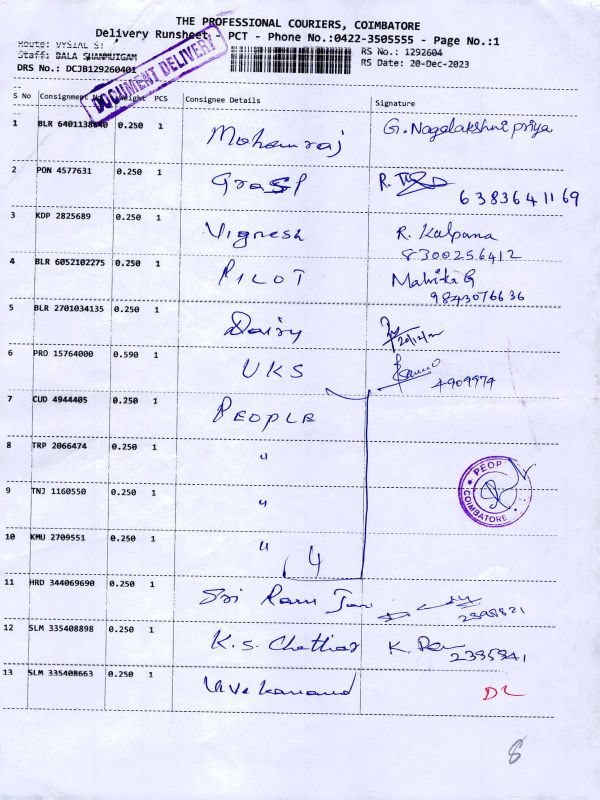 THE PROFESSIONAL COURIERS, COIMBATORE
Delivery Runsheet - PCT - Phone No.:0422-3505555 - Page No.:1
Route: VYSIAL S!
Staff: BALA SHANMUIGAM
RS No.: 1292604
DRS No.: DCJB129260401
RS Date: 20-Dec-2023
DOCUMENT DELIVERY
S No Consignment Weight PCS Consignee Details Signature
1 BLR 6401138640 0.250 1 Mohanraj G. Nagalakshmi priya
2 PON 4577631 0.250 1 Grasp R. 6383641169
3 KDP 2825689 0.250 1 Vignesh R. Kalpana
8300256412
4 BLR 6052102275 0.250 1 PILOT Malvika G
9843076636
5 BLR 2701034135 0.250 1 Dairy 20/12/
6 PRO 15764000 0.590 1 UKS
4909974
7 CUD 4944405 0.250 1 PEOPLE
8 TRP 2066474 0.250 1 "
PEOP
COIMBATORE
9 TNJ 1160550 0.250 1 "
10 KMU 2709551 0.250 1 " 4
11 HRD 344069690 0.250 1 Sri Ram
2398821
12 SLM 335408898 0.250 1 K.S. Chettiar K.
2395841
13 SLM 335408663 0.250 1 Vivekanand
8